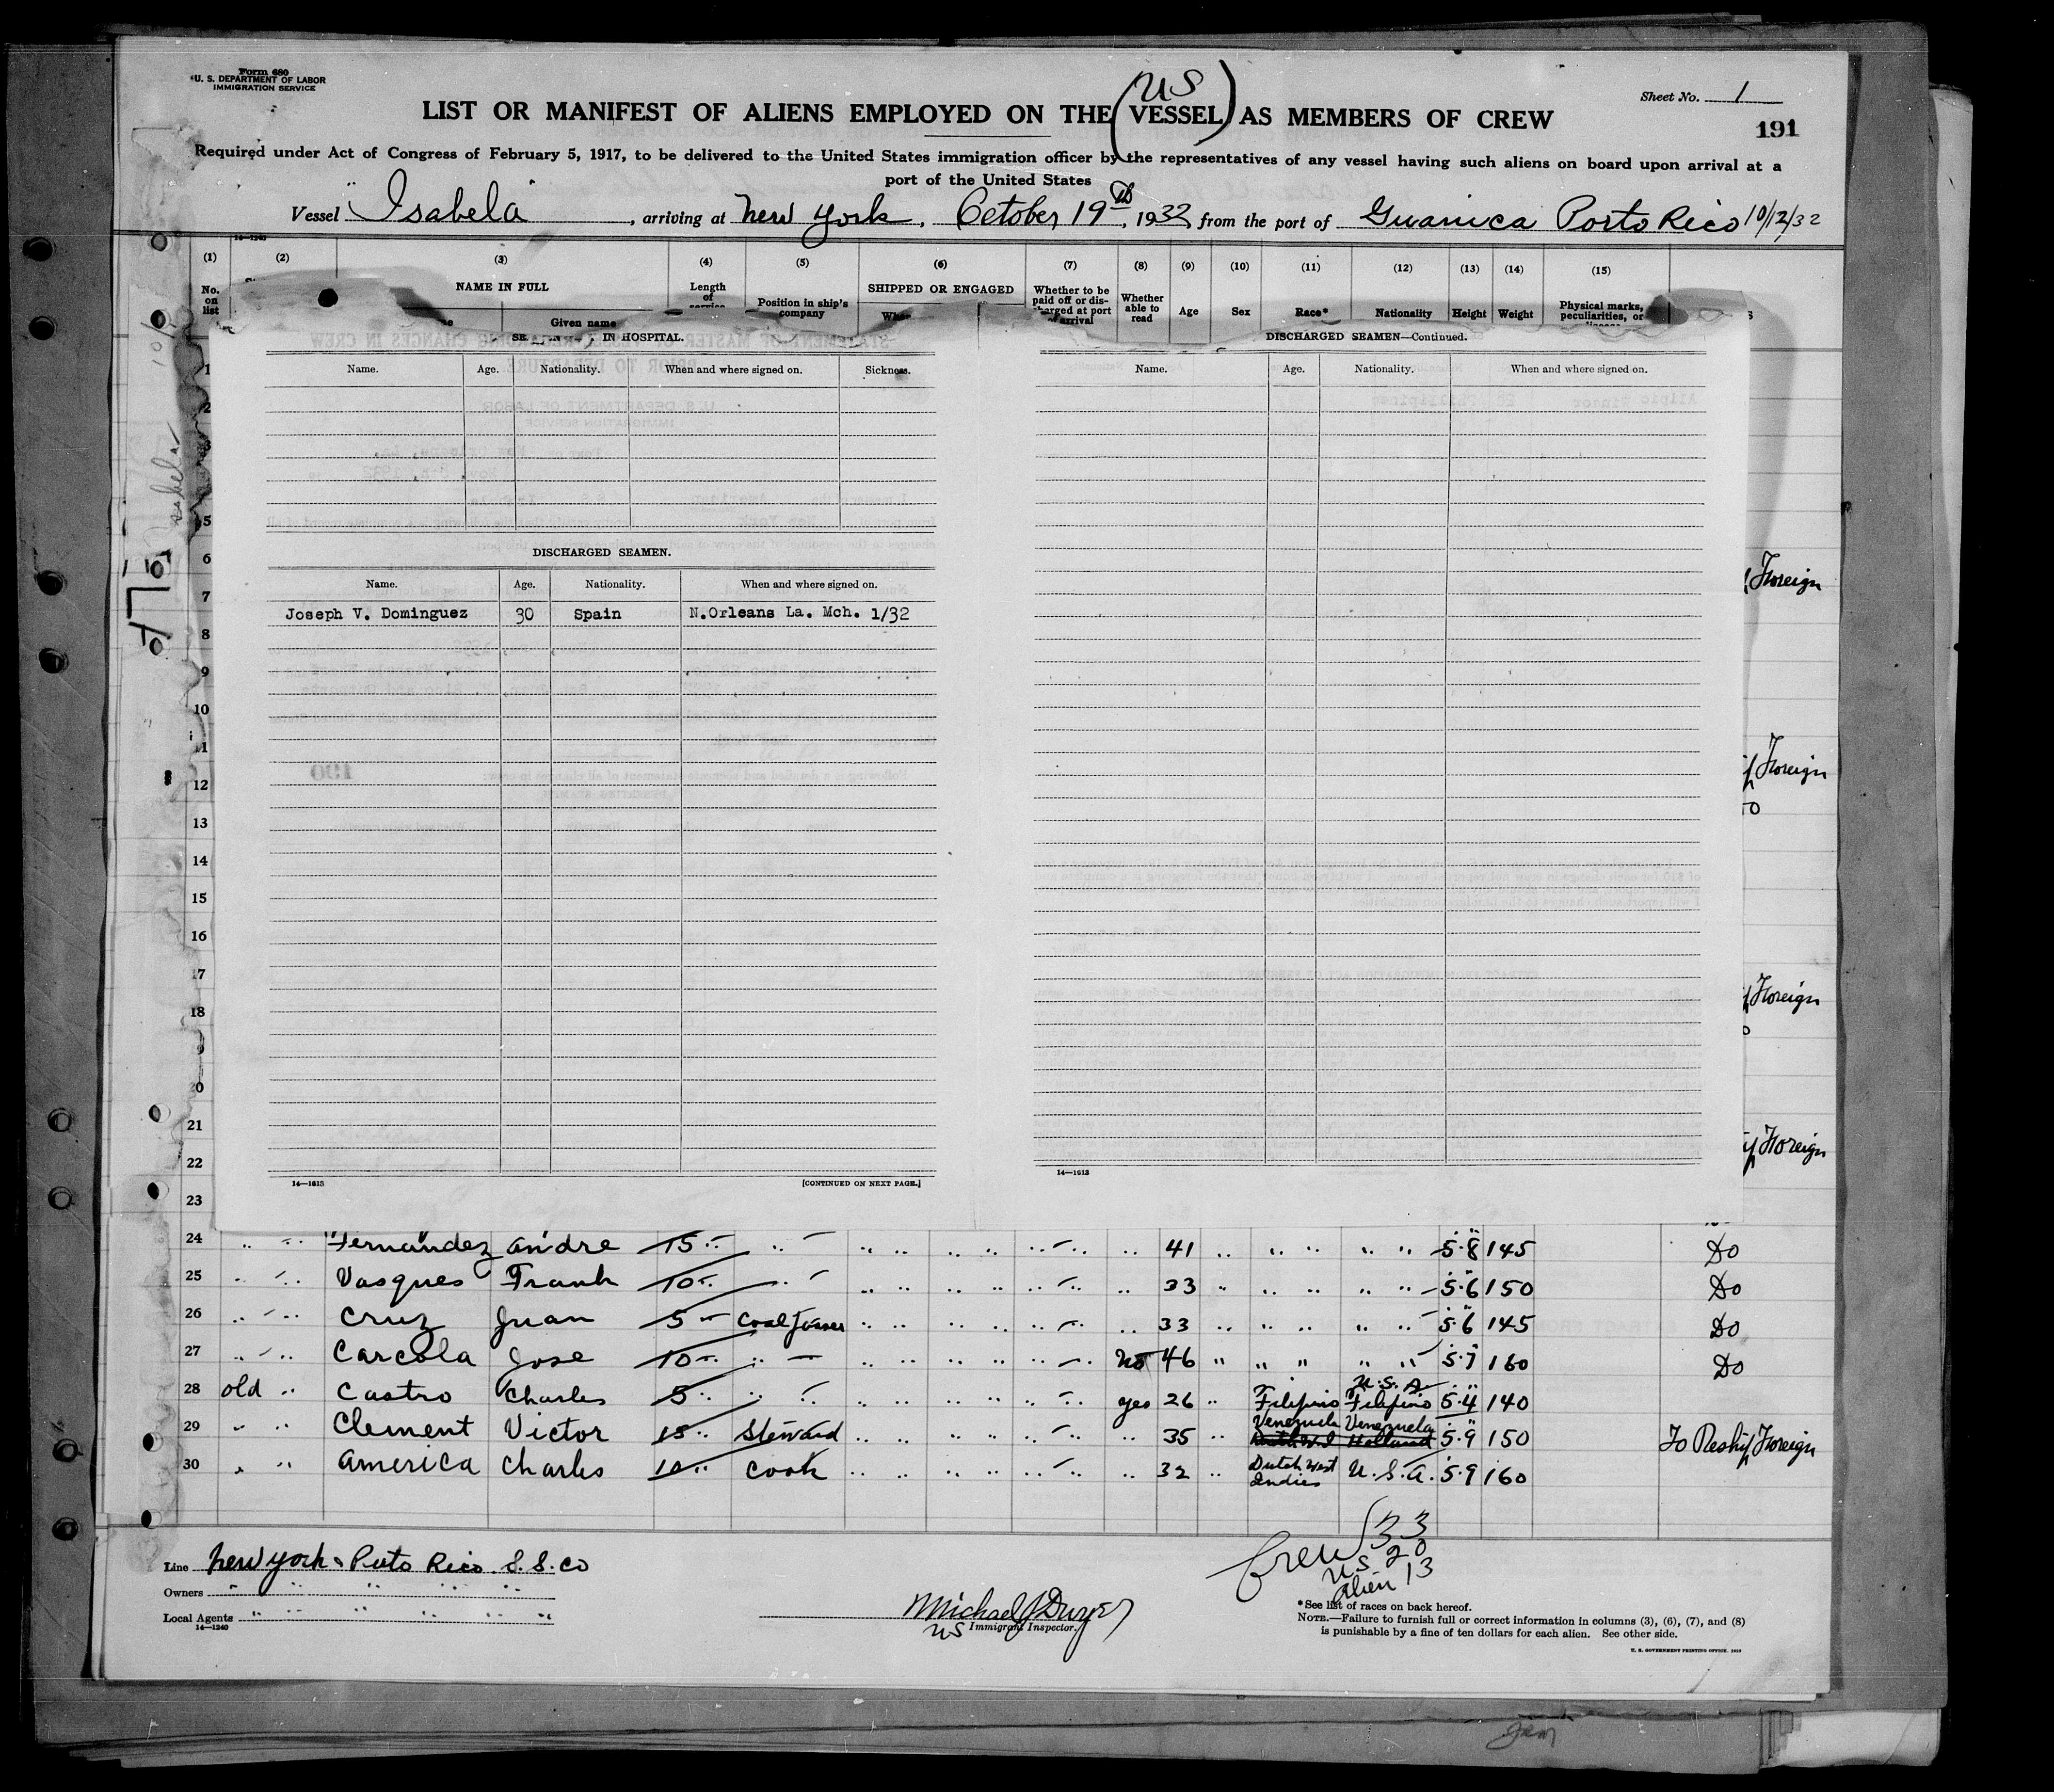 Form 680
U. S. DEPARTMENT OF LABOR
IMMIGRATION SERVICE
Sheet No. 1
191
US
LIST OR MANIFEST OF ALIENS EMPLOYED ON THE (VESSEL) AS MEMBERS OF CREW
Required under Act of Congress of February 5, 1917, to be delivered to the United States immigration officer by the representatives of any vessel having such aliens on board upon arrival at a
port of the United States
Vessel "Isabela", arriving at New York, October 19th, 1932 from the port of Guanica Porto Rico 10/12/32
14—1240
(1) (2) (3) (4) (5) (6) (7) (8) (9) (10) (11) (12) (13) (14) (15)
No. on list NAME IN FULL Given name Length of service Position in ship's company SHIPPED OR ENGAGED Whether to be paid off or discharged at port of arrival Whether able to read Age Sex Race* Nationality Height Weight Physical marks, peculiarities, or
IN HOSPITAL.
Name. Age. Nationality. When and where signed on. Sickness.
DISCHARGED SEAMEN.
Name. Age. Nationality. When and where signed on.
Joseph V. Dominguez 30 Spain N.Orleans La. Mch. 1/32
14—1613
[CONTINUED ON NEXT PAGE.]
DISCHARGED SEAMEN—Continued.
Name. Age. Nationality. When and where signed on.
14—1613
1
2
3
5
6
7
8
9
10
11
12
13
14
15
16
17
18
9
20
21
22
23
Foreign
Foreign
Foreign
Foreign
24 " " Fernandez Andre 15 " " " " " " " " " 41 " " " " " 5·8 145 Do
25 " " Vasques Frank 10 " " " " " " " " " 33 " " " " " 5·6 150 Do
26 " " Cruz Juan 5 " Coal Passer " " " " " " " 33 " " " " " 5·6 145 Do
27 " " Carcola Jose 10 " " " " " " " " No 46 " " " " " 5·7 160 Do
28 old " Castro Charles 5 " " " " " " " yes 26 " Filipino U.S.A. Filipino 5·4 140
29 " " Clement Victor 15 " Steward " " " " " " " 35 " Venezuela Venezuela Dutch W.I. Holland 5·9 150 To Reship Foreign
30 " " America Charles 10 " Cook " " " " " " " 32 " Dutch West Indies U.S.A. 5·9 160
Crew 33
US 20
Alien 13
Line New York & Porto Rico S.S. Co
Owners " " " " "
Local Agents " " " " " "
14—1240
Michael J Dwyer
US Immigrant Inspector.
*See list of races on back hereof.
NOTE.—Failure to furnish full or correct information in columns (3), (6), (7), and (8)
is punishable by a fine of ten dollars for each alien. See other side.
U. S. GOVERNMENT PRINTING OFFICE